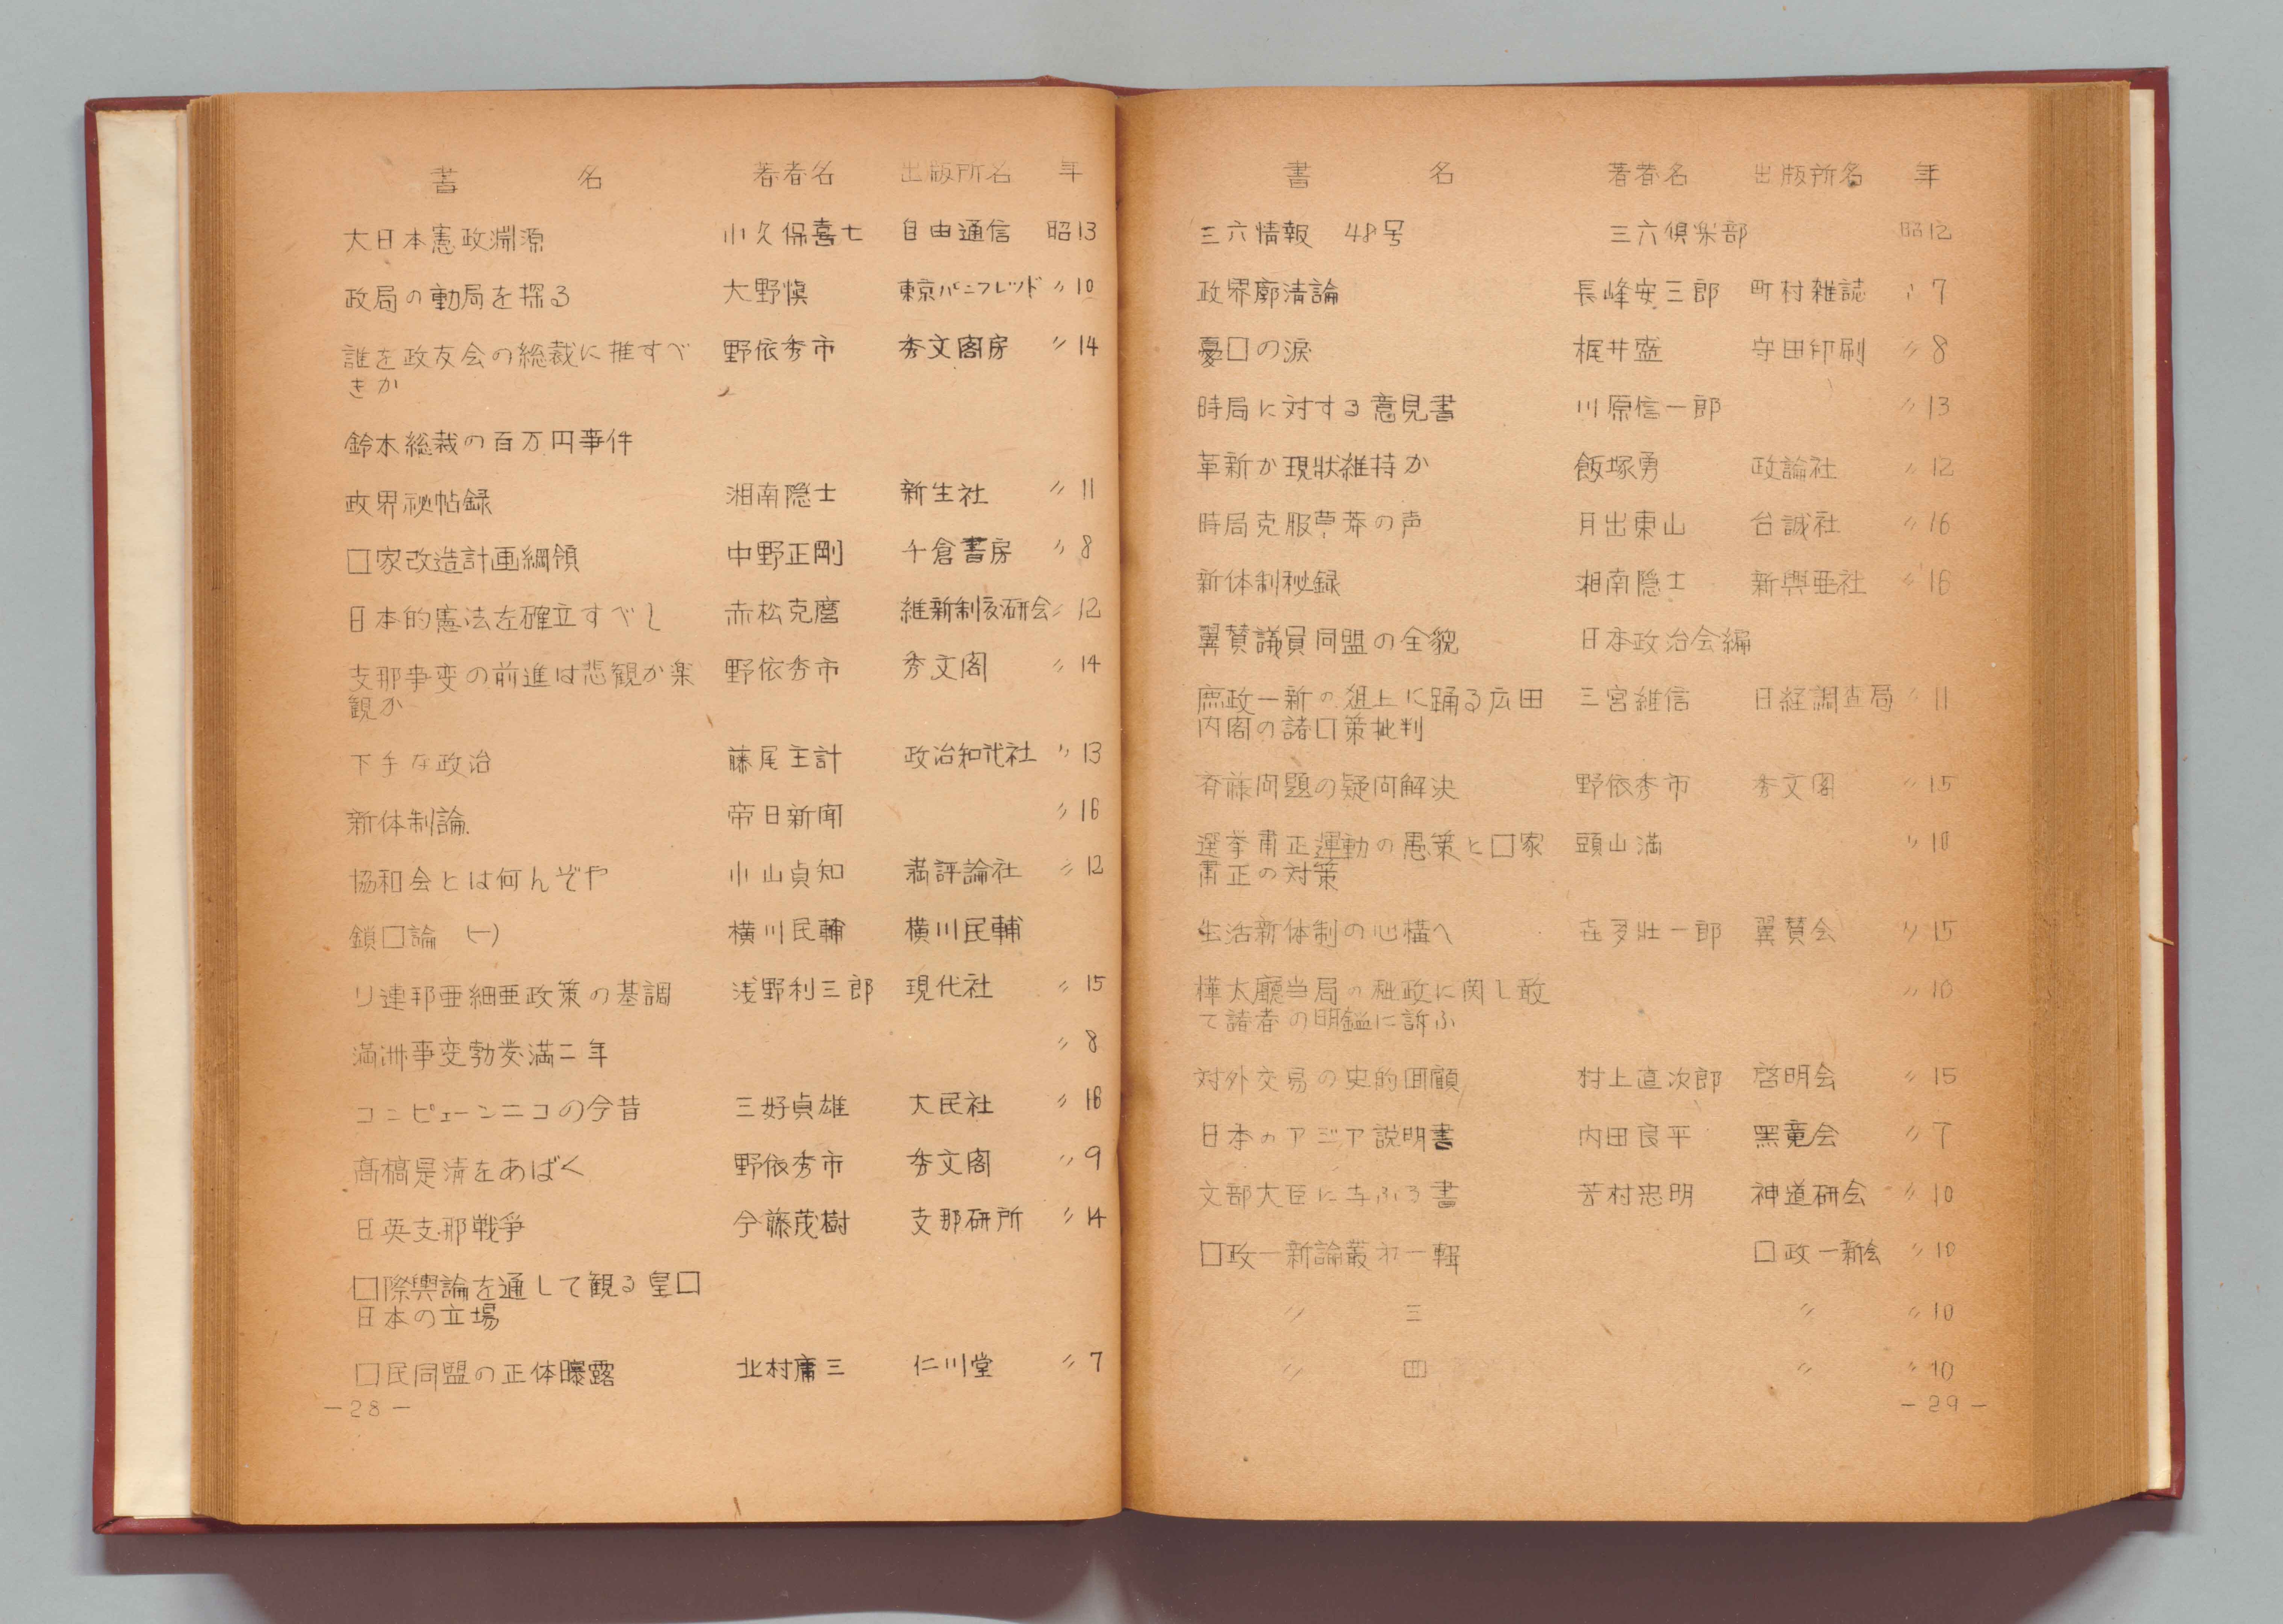 書 名 著者名 出版所名 年
大日本憲政渊源 小久保喜七 自由通信 昭13
政局の動局を探る 大野慎 東京パンフレツド 〃10
誰を政友会の総裁に推すべ 野依秀市 秀文閣房 〃14
きか
鈴木総裁の百万円事件
政界祕帖録 湘南隠士 新生社 〃11
囗家改造計画綱領 中野正剛 千倉書房 〃8
日本的憲法を確立すべし 赤松克麿 維新制度研会 〃12
支那事変の前進は悲観か楽 野依秀市 秀文閣 〃14
観か
下手な政治 藤尾主計 政治知識社 〃13
新体制論 帝日新聞 〃16
協和会とは何んぞや 小山貞知 満評論社 〃12
鎖囗論 (一) 横川民輔 横川民輔
リ連邦亜細亜政策の基調 浅野利三郎 現代社 〃15
満洲事変勃発満二年 〃8
コンピェーンニコの今昔 三好貞雄 大民社 〃16
高橋是清をあばく 野依秀市 秀文閣 〃9
日英支那戦争 今藤茂樹 支那研所 〃14
囗際輿論を通して観る皇囗
日本の立場
囗民同盟の正体曝露 北村庸三 仁川堂 〃7
－28－
書 名 著者名 出版所名 年
三六情報 48号 三六倶楽部 昭12
政界廓清論 長峰安三郎 町村雑誌 〃7
憂囗の涙 梶井盛 守田印刷 〃8
時局に対する意見書 川原信一郎 〃13
革新か現状維持か 飯塚勇 政論社 〃12
時局克服草莽の声 月出東山 台誠社 〃16
新体制秘録 湘南隠士 新興亜社 〃16
翼賛議員同盟の全貌 日本政治会編
庶政一新の俎上に踊る広田 三宮維信 日経調査局 〃11
内閣の諸囗策批判
斉藤問題の疑问解決 野依秀市 秀文閣 〃15
選挙粛正運動の愚策と囗家 頭山満 〃10
粛正の対策
生活新体制の心構へ 喜多壮一郎 翼賛会 〃15
樺太廳当局の秕政に関し敢 〃10
て諸者の明鑑に訴ふ
対外交易の史的回顧 村上直次郎 啓明会 〃15
日本のアジア説明書 内田良平 黒竜会 〃7
文部大臣に与ふる書 芳村忠明 神道研会 〃10
囗政一新論叢才一輯 囗政一新会 〃10
〃 三 〃 〃10
〃 四 〃 〃10
－29－